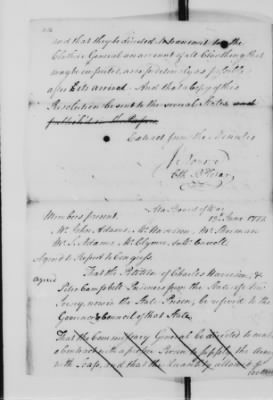 and that they be directed to transmit to the
Clothier General an account of all Cloathing that
may be imported, as soon as possible
after its arrival. And that a Copy of this
Resolution be sent to the several States and
published in the Papers
Extract from the Minutes
At a Board of War
13th June 1777.
Members present
Mr. John Adams, Mr. Harrison, Mr. Sherman
Mr. S. Adams, Mr. Clymer, Carroll
Agreed to Report to Congress
Agreed
That the Petition of Charles Harrison, &
Peter Campbell Prisoners from the State of New
Jersey, now in the State Prison, be referred to the
Governor & Council of that State.
That the Commissary General be directed to make
a Contract with a proper Person to supply the Army
with Soap, and that the Quantity allowed